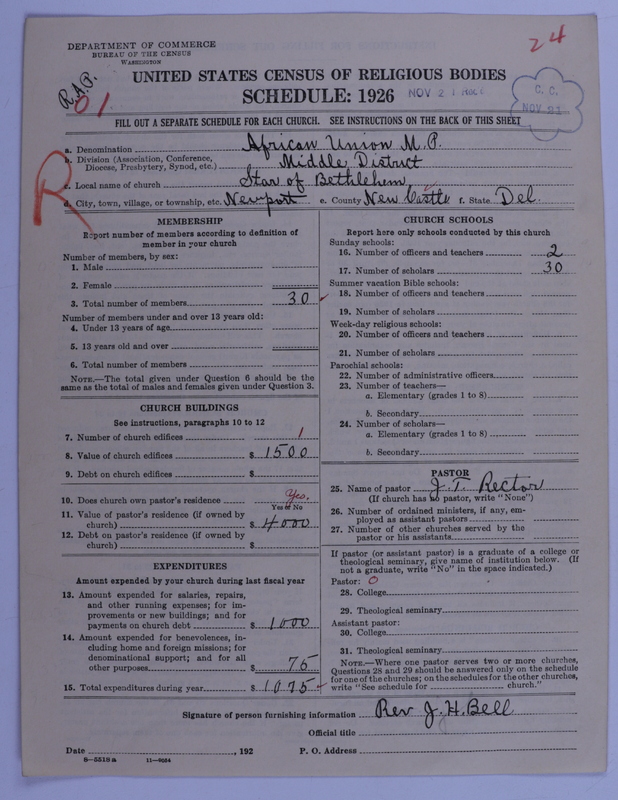 DEPARTMENT OF COMMERCE
BUREAU OF THE CENSUS
WASHINGTON
24
R.A.P.
01
UNITED STATES CENSUS OF RELIGIOUS BODIES
SCHEDULE: 1926
NOV 21
C. C.
NOV 21
FILL OUT A SEPARATE SCHEDULE FOR EACH CHURCH. SEE INSTRUCTIONS ON THE BACK OF THIS SHEET
R
a. Denomination African Union M.P.
b. Division (Association, Conference, Diocese, Presbytery, Synod, etc.) Middle District
c. Local name of church Star of Bethlehem
d. City, town, village, or township, etc. Newport e. County New Castle f. State Del.
MEMBERSHIP
Report number of members according to definition of
member in your church
Number of members, by sex:
1. Male
2. Female
3. Total number of members 30
Number of members under and over 13 years old:
4. Under 13 years of age
5. 13 years old and over
6. Total number of members
NOTE.—The total given under Question 6 should be the
same as the total of males and females given under Question 3.
CHURCH BUILDINGS
See instructions, paragraphs 10 to 12
7. Number of church edifices 1
8. Value of church edifices $ 1500
9. Debt on church edifices $
10. Does church own pastor's residence Yes.
Yes or No
11. Value of pastor's residence (if owned by
church) $ 4000
12. Debt on pastor's residence (if owned by
church) $
EXPENDITURES
Amount expended by your church during last fiscal year
13. Amount expended for salaries, repairs,
and other running expenses; for im-
provements or new buildings; and for
payments on church debt $ 1000
14. Amount expended for benevolences, in-
cluding home and foreign missions; for
denominational support; and for all
other purposes $ 75
15. Total expenditures during year $ 1075
CHURCH SCHOOLS
Report here only schools conducted by this church
Sunday schools:
16. Number of officers and teachers 2
17. Number of scholars 30
Summer vacation Bible schools:
18. Number of officers and teachers
19. Number of scholars
Week-day religious schools:
20. Number of officers and teachers
21. Number of scholars
Parochial schools:
22. Number of administrative officers
23. Number of teachers—
a. Elementary (grades 1 to 8)
b. Secondary
24. Number of scholars—
a. Elementary (grades 1 to 8)
b. Secondary
PASTOR
25. Name of pastor J. T. Rector
(If church has no pastor, write "None")
26. Number of ordained ministers, if any, em-
ployed as assistant pastors
27. Number of other churches served by the
pastor or his assistants
If pastor (or assistant pastor) is a graduate of a college or
theological seminary, give name of institution below. (If
not a graduate, write "No" in the space indicated.)
Pastor: 0
28. College
29. Theological seminary
Assistant pastor:
30. College
31. Theological seminary
NOTE.—Where one pastor serves two or more churches,
Questions 28 and 29 should be answered only on the schedule
for one of the churches; on the schedules for the other churches,
write "See schedule for church."
Signature of person furnishing information Rev J. H. Bell
Official title
Date , 192 P. O. Address
8—5518a 11—9054